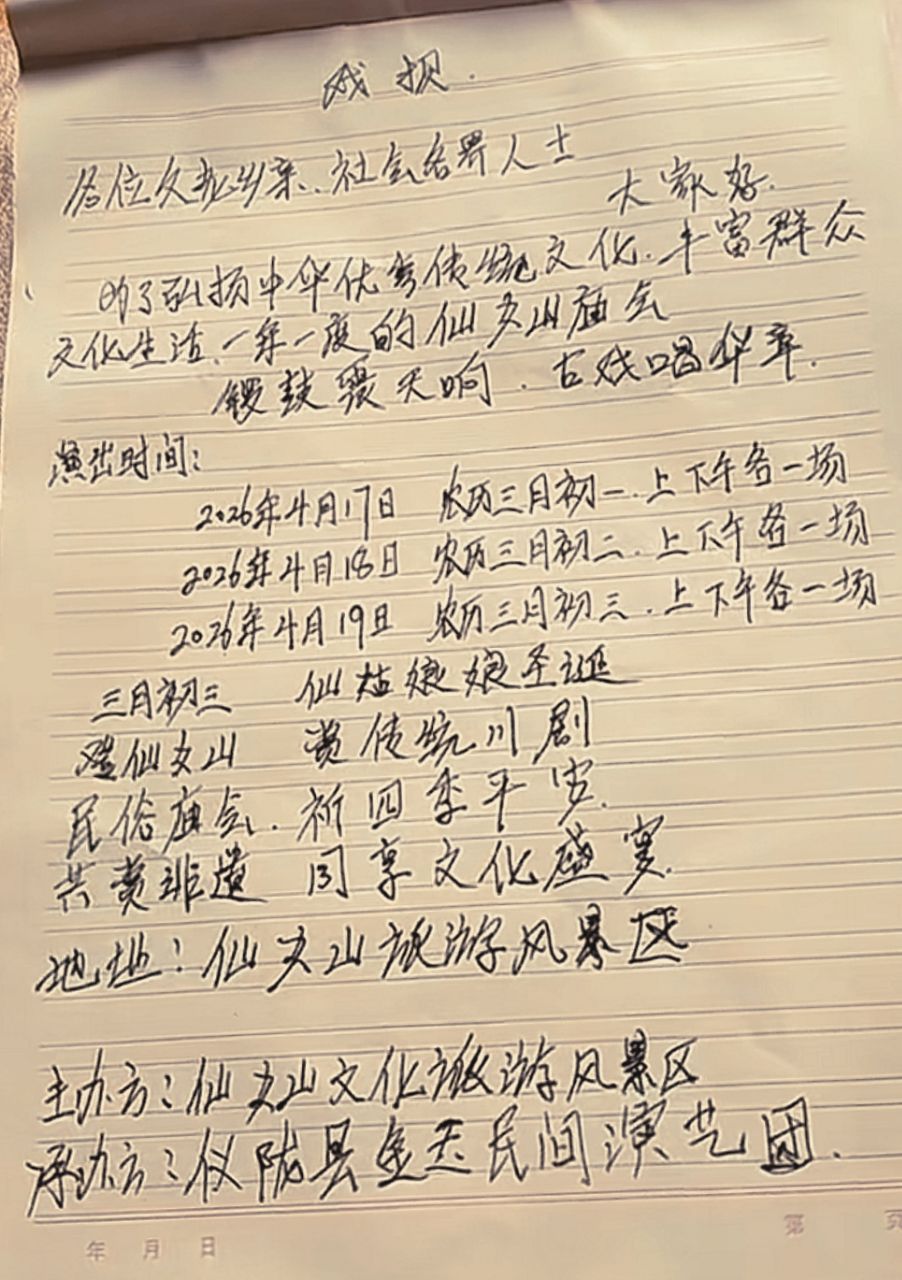 戏报.
各位父老乡亲、社会各界人士
大家好.
为了弘扬中华优秀传统文化.丰富群众
文化生活、一年一度的仙女山庙会
锣鼓震天响.古戏唱华章.
演出时间：
2026年4月17日 农历三月初一.上下午各一场
2026年4月18日 农历三月初二.上下午各一场
2026年4月19日 农历三月初三.上下午各一场
三月初三 仙姑娘娘圣诞
登仙女山 赏传统川剧
民俗庙会.祈四季平安.
共赏非遗 同享文化盛宴.
地址：仙女山旅游风景区
主办方：仙女山文化旅游风景区
承办方：仪陇县金玉民间演艺团.
年 月 日 第 页